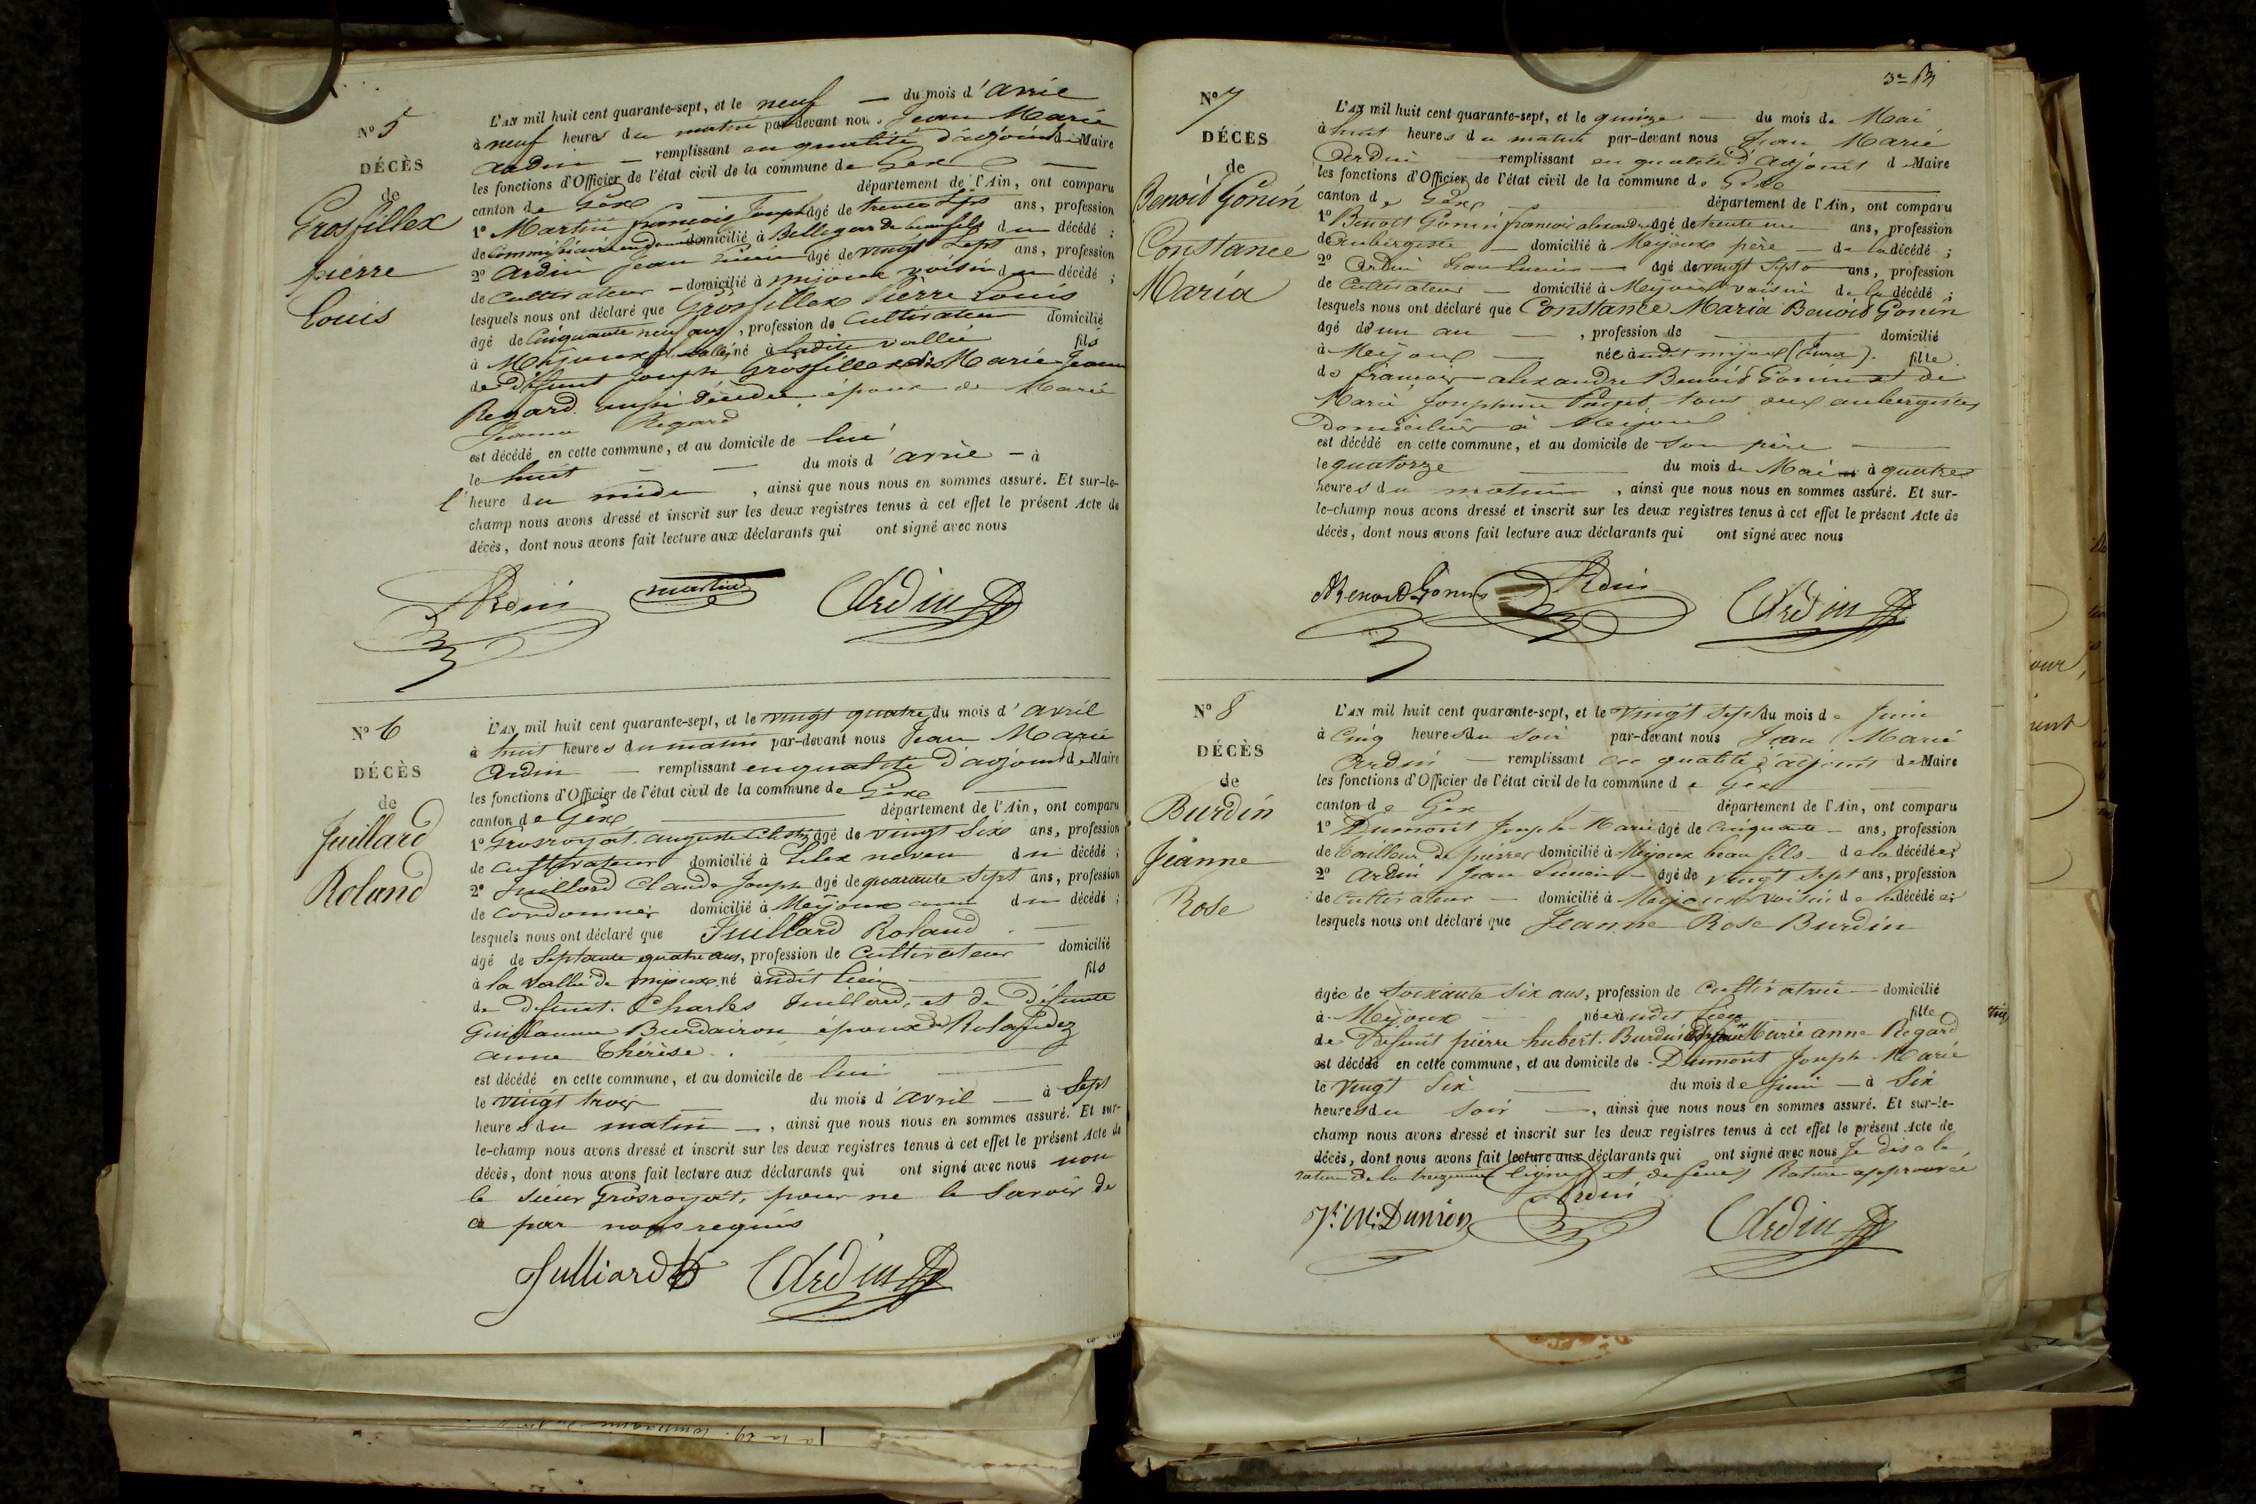 N° 5
DÉCÈS
de
Grosfillex
pierre
Louis
L'AN mil huit cent quarante-sept, et le neuf du mois d'
à neuf heures du matin par-devant nous Jean Marie
Ardin remplissant en qualité d'adjoint de Maire
les fonctions d'Officier de l'état civil de la commune de Gex
canton de Gex département de l'Ain, ont comparu
1° Martin françois Joseph âgé de trente sept ans, profession
de domicilié à Bellegarde beaufils du décédé ;
2° Ardin Jean âgé de vingt sept ans, profession
de Cultivateur domicilié à mijoux voisin du décédé ;
lesquels nous ont déclaré que Grosfillex Pierre Louis
âgé de Cinquante neuf ans, profession de Cultivateur domicilié
à Mijoux né à ladite vallée fils
de Défunt Joseph Grosfillex et de Marie Jeanne
Regard aussi décédée, époux de Marie
Jeanne Regard
est décédé en cette commune, et au domicile de lui
le huit du mois d' à
l' heure du midi, ainsi que nous nous en sommes assuré. Et sur-le-
champ nous avons dressé et inscrit sur les deux registres tenus à cet effet le présent Acte de
décès, dont nous avons fait lecture aux déclarants qui ont signé avec nous
Ardin martin Ardin
N° 6
DÉCÈS
de
Juillard
Roland
L'AN mil huit cent quarante-sept, et le vingt quatre du mois d'avril
à huit heures du matin par-devant nous Jean Marie
Ardin remplissant en qualité d'adjoint de Maire
les fonctions d'Officier de l'état civil de la commune de Gex
canton de Gex département de l'Ain, ont comparu
1° Grosroyat auguste âgé de vingt six ans, profession
de cultivateur domicilié à Lelex neveu du décédé ;
2° Juillard Claude Joseph âgé de quarante sept ans, profession
de cordonnier domicilié à Mijoux du décédé ;
lesquels nous ont déclaré que Juillard Roland
âgé de Septante quatre ans, profession de Cultivateur domicilié
à la vallée de mijoux né audit lieu fils
de defunt Charles Juillard, et de défunte
Guillaume Burdairon époux de Rolandez
anne Thérèse.
est décédé en cette commune, et au domicile de lui
le vingt trois du mois d'avril à Sept
heures du matin, ainsi que nous nous en sommes assuré. Et sur-
le-champ nous avons dressé et inscrit sur les deux registres tenus à cet effet le présent Acte de
décès, dont nous avons fait lecture aux déclarants qui ont signé avec nous non
le sieur Grosroyat, pour ne le Savoir de
ce par nous requis
Julliard Ardin
N° 7
DÉCÈS
de
Benoid Gonin
Constance
Maria
L'AN mil huit cent quarante-sept, et le quinze du mois de Mai
à huit heures du matin par-devant nous Jean Marie
Ardin remplissant en qualité d'Adjoint de Maire
les fonctions d'Officier de l'état civil de la commune de Gex
canton de Gex département de l'Ain, ont comparu
1° Benoit Gonin francois alexandre âgé de trente un ans, profession
de aubergiste domicilié à Meijoux père de la décédé ;
2° Ardin Jean Lucien âgé de vingt Sept ans, profession
de Cultivateur domicilié à Meijoux voisin de la décédé ;
lesquels nous ont déclaré que Constance Maria Benoid Gonin
âgé d'un an, profession de domicilié
à Meijoux née audit mijoux (Jura). fille
de françois alexandre Benoid Gonin et de
Marie Josephine Paget tous deux aubergistes
Domiciliés à Meijoux
est décédé en cette commune, et au domicile de son père
le quatorze du mois de Mai à quatre
heures du matin, ainsi que nous nous en sommes assuré. Et sur-
le-champ nous avons dressé et inscrit sur les deux registres tenus à cet effet le présent Acte de
décès, dont nous avons fait lecture aux déclarants qui ont signé avec nous
Benoid Gonin Ardin Ardin
N° 8
DÉCÈS
de
Burdin
Jeanne
Rose
L'AN mil huit cent quarante-sept, et le vingt sept du mois de Juin
à Cinq heures du soir par-devant nous Jean Marie
Ardin remplissant en qualité d'adjoint de Maire
les fonctions d'Officier de l'état civil de la commune de Gex
canton de Gex département de l'Ain, ont comparu
1° Dumont Joseph Marie âgé de Cinquante ans, profession
de tailleur de pierres domicilié à Mijoux beau fils de la décédée ;
2° Ardin Jean Lucien âgé de vingt Sept ans, profession
de Cultivateur domicilié à Mijoux voisin de la décédée ;
lesquels nous ont déclaré que Jeanne Rose Burdin
âgée de Soixante Six ans, profession de Cultivatrice domicilié
à Mijoux née audit lieu fille
de Défunt pierre hubert Burdin Marie anne Regard
est décédé en cette commune, et au domicile de Dumont Joseph Marie
le vingt Six du mois de Juin à Six
heures du Soir, ainsi que nous nous en sommes assuré. Et sur-le-
champ nous avons dressé et inscrit sur les deux registres tenus à cet effet le présent Acte de
décès, dont nous avons fait lecture aux déclarants qui ont signé avec nous Je dis a la
rature de la treizieme ligne et Rature approuvée
Ardin Ardin